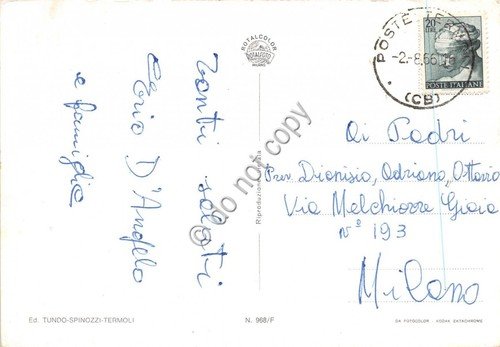 ROTALCOLOR
ROTALFOTO
MILANO
Tanti saluti
Dario D'Angelo
e famiglia
Riproduzione vietata
do not copy
20
LIRE
POSTE ITALIANE
POSTE TER
-2.-8.66.
(CB)
Ai Padri
Prev. Dionisio, Adriano, Ottavio
Via Melchiorre Gioia
n° 193
Milano
Ed. TUNDO-SPINOZZI-TERMOLI
N. 968/F
DA FOTOCOLOR - KODAK EKTACHROME